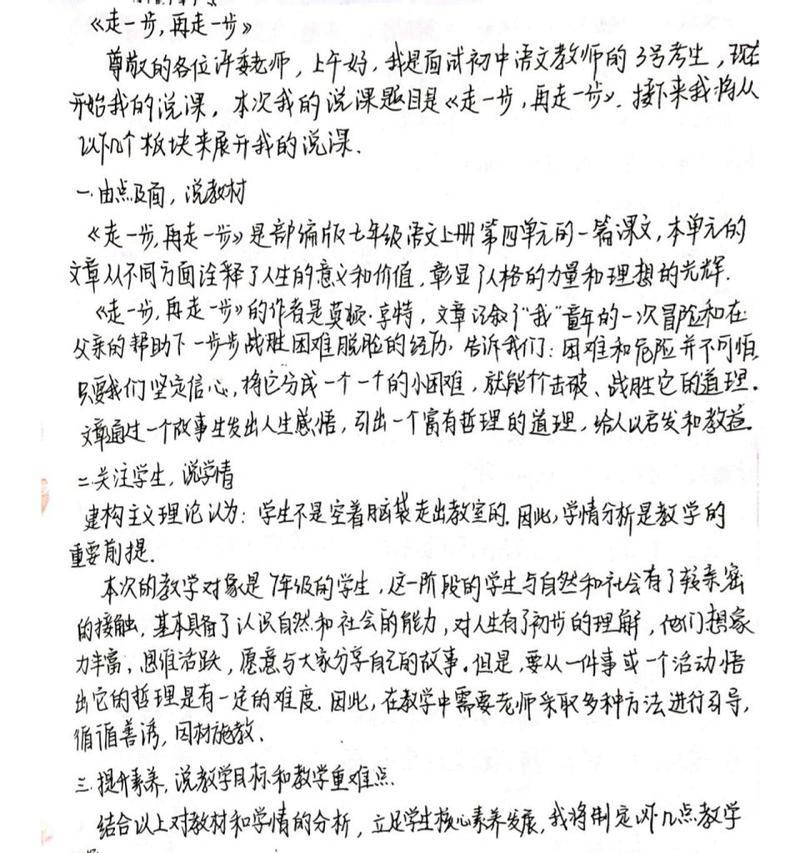 《走一步,再走一步》
尊敬的各位评委老师,上午好,我是面试初中语文教师的3号考生,现在
开始我的说课。本次我的说课题目是《走一步,再走一步》.接下来我将从
以下几个板块来展开我的说课.
一.由点及面,说教材
《走一步,再走一步》是部编版七年级语文上册第四单元的一篇课文,本单元的
文章从不同方面诠释了人生的意义和价值,彰显了人格的力量和理想的光辉.
《走一步,再走一步》的作者是莫顿·亨特,文章记叙了"我"童年的一次冒险和在
父亲的帮助下一步步战胜困难脱险的经历,告诉我们:困难和危险并不可惧
只要我们坚定信心,将它分成一个一个的小困难,就能个击破、战胜它的道理.
文章通过一个故事生发出人生感悟,引出一个富有哲理的道理,给人以启发和教益.
二.关注学生,说学情
建构主义理论认为:学生不是空着脑袋走出教室的.因此,学情分析是教学的
重要前提.
本次的教学对象是7年级的学生,这一阶段的学生与自然和社会有了较亲密
的接触,基本具备了认识自然和社会的能力,对人生有了初步的理解,他们想象
力丰富,思维活跃,愿意与大家分享自己的故事.但是,要从一件事或一个活动悟
出它的哲理是有一定的难度.因此,在教学中需要老师采取多种方法进行引导,
循循善诱,因材施教.
三.提升素养,说教学目标和教学重难点.
结合以上对教材和学情的分析,立足学生核心素养发展,我将制定以下几点教学